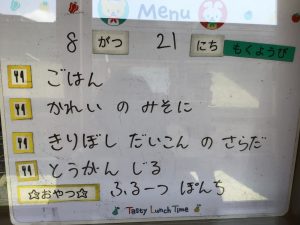 Menu
8 がつ 21 にち もくようび
ごはん
かれい の みそに
きりぼし だいこん の さらだ
とうがん じる
☆おやつ☆ ふるーつ ぽんち
Tasty Lunch Time